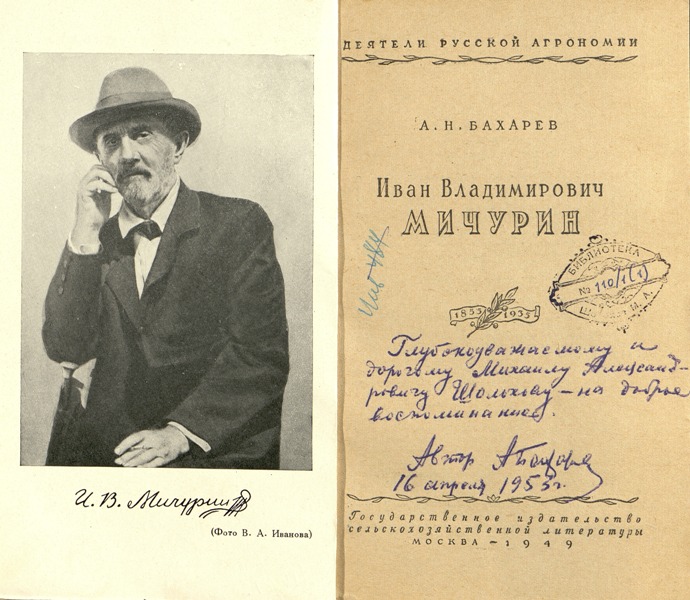 И. В. Мичурин
(Фото В. А. Иванова)
ДЕЯТЕЛИ РУССКОЙ АГРОНОМИИ
А. Н. БАХАРЕВ
Иван Владимирович
МИЧУРИН
Инв 484
БИБЛИОТЕКА
№ 110/1(1)
1855 1935
Глубокоуважаемому и
дорогому Михаилу Александ-
ровичу Шолохову – на доброе
воспоминание.
Автор АБахарев
16 апреля 1953 г.
Государственное издательство
сельскохозяйственной литературы
МОСКВА – 1949